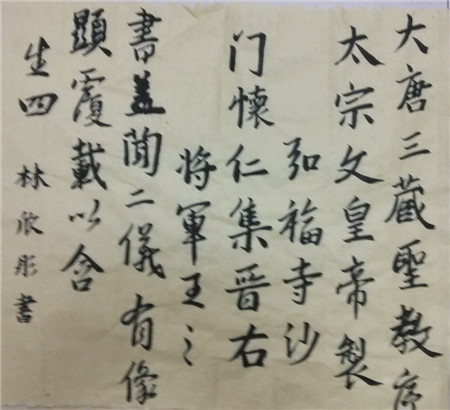 大唐三藏聖教序
太宗文皇帝製
弘福寺沙
门懷仁集晋右
將軍王之
書盖聞二儀有像
顕覆載以含
生四
林欣彤書